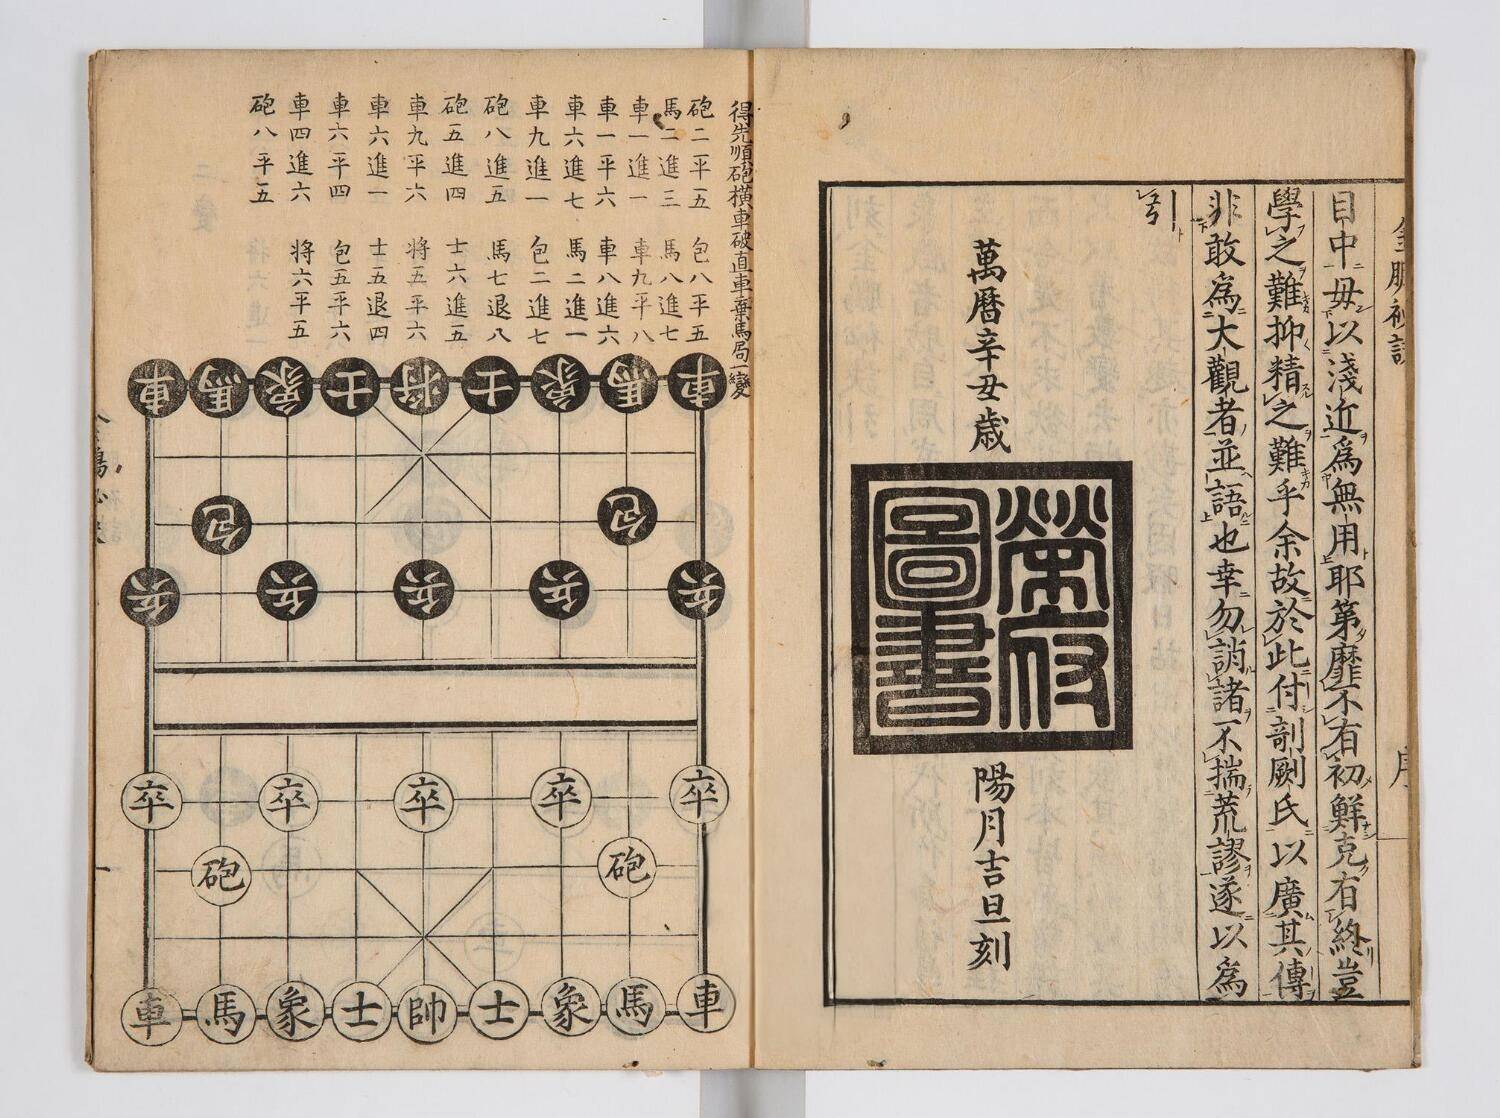 金鵬秘訣 序
目中毋以淺近爲無用耶第靡不有初鮮克有終豈
學之難抑精之難乎余故於此付剞劂氏以廣其傳
非敢爲大觀者並語也幸勿誚諸不揣荒謬遂以爲
引
萬曆辛丑歲
榮府圖書
陽月吉旦刻
得先順砲橫車破直車棄馬局一變
砲二平五 包八平五
馬二進三 馬八進七
車一進一 車九平八
車一平六 車八進六
車六進七 馬二進一
車九進一 包二進七
砲八進五 馬七退八
砲五進四 士六進五
車九平六 将五平六
車六進一 士五退四
車六平四 包五平六
車四進六 将六平五
砲八平五
車馬象士将士象馬車
包包
兵兵兵兵兵
卒卒卒卒卒
砲砲
車馬象士帥士象馬車